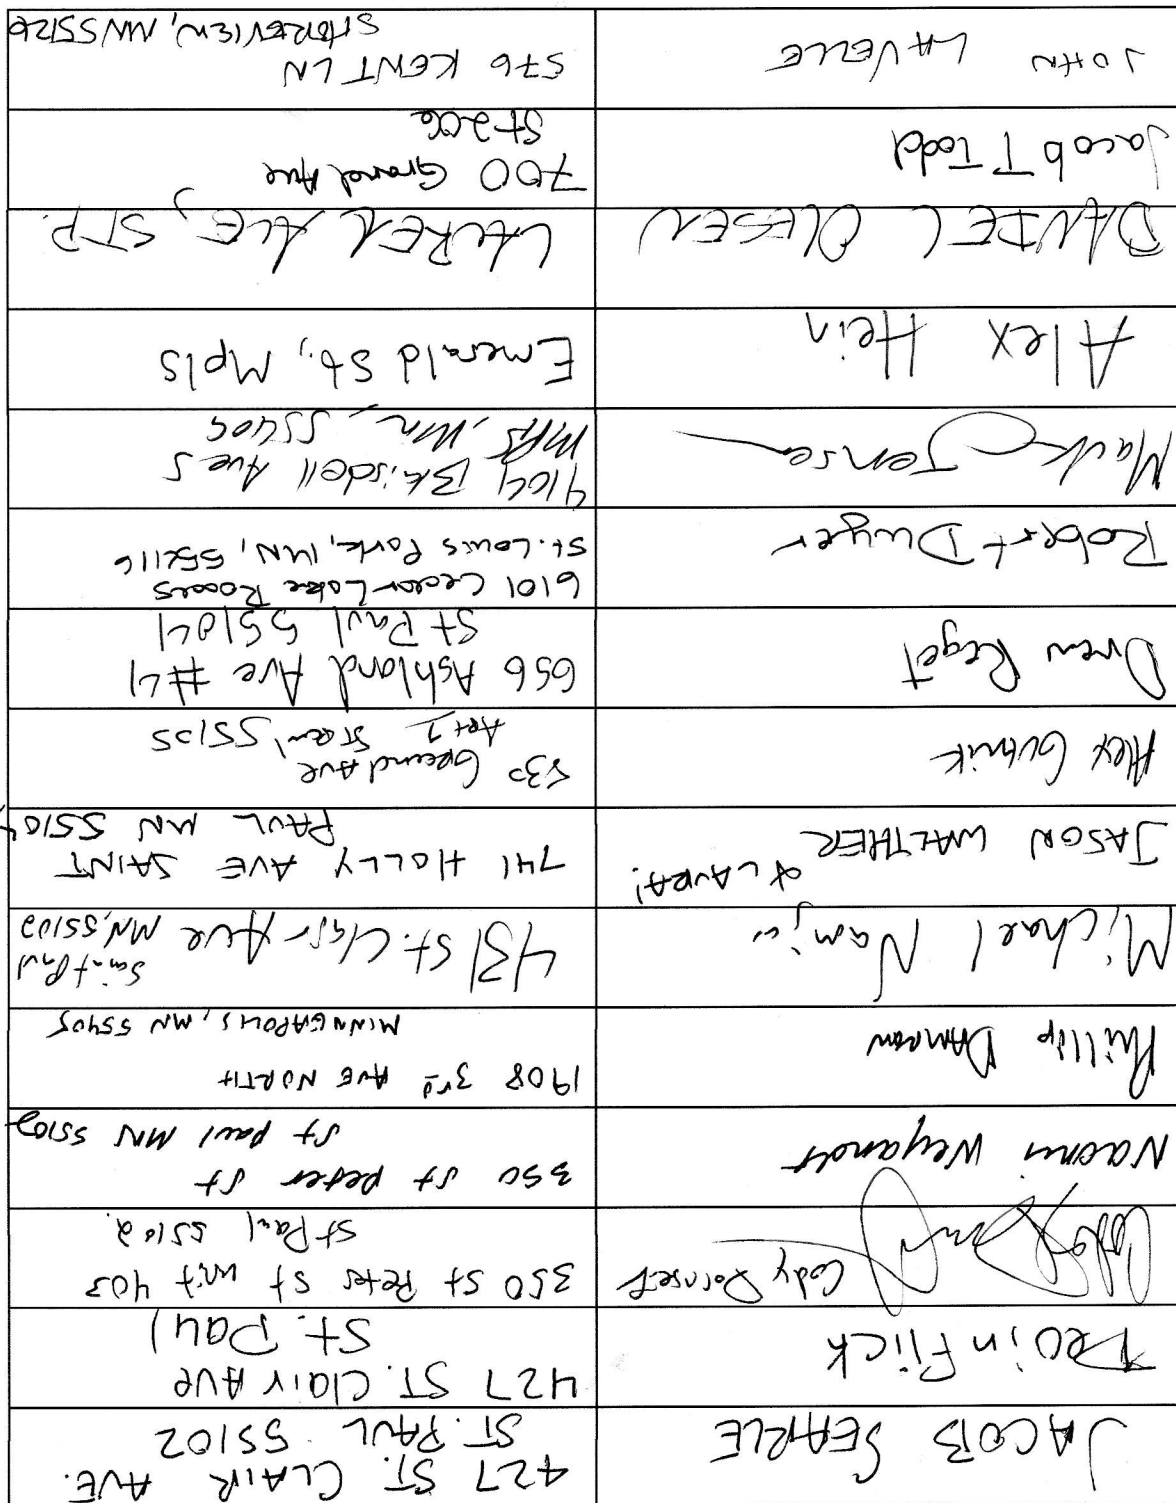 JACOB SEARLE
427 ST. CLAIR AVE.
ST. PAUL 55102
Flick
427 ST. Clair Ave
St. Paul
Cody Dornset
350 St Peter St unit 403
St Paul 55102
Naomi Weyandt
350 st peter st
st paul MN 55102
Phillip Damron
1908 3rd AVE NORTH
MINNEAPOLIS, MN 55405
Michael
431 St. Clair Ave Saint Paul
MN, 55102
JASON WALTHER
& LAURA!
741 HOLLY AVE SAINT
PAUL MN 55104
Alex Gutnik
530 Grand Ave
Apt 2 St Paul, 55105
Drew Reget
656 Ashland Ave #4
St Paul 55104
Robert Dwyer
6101 Cedar Lake Road
St. Louis Park, MN,
Mark Jensen
Blaisdell Ave S
Mpls, Mn, 55409
Alex Hein
Emerald St, Mpls
DANIEL OLESEN
LAUREL AVE, STP.
Jacob T Todd
700 Grand Ave
St 206
JOHN LAVELLE
576 KENT LN
SHOREVIEW, MN 55126